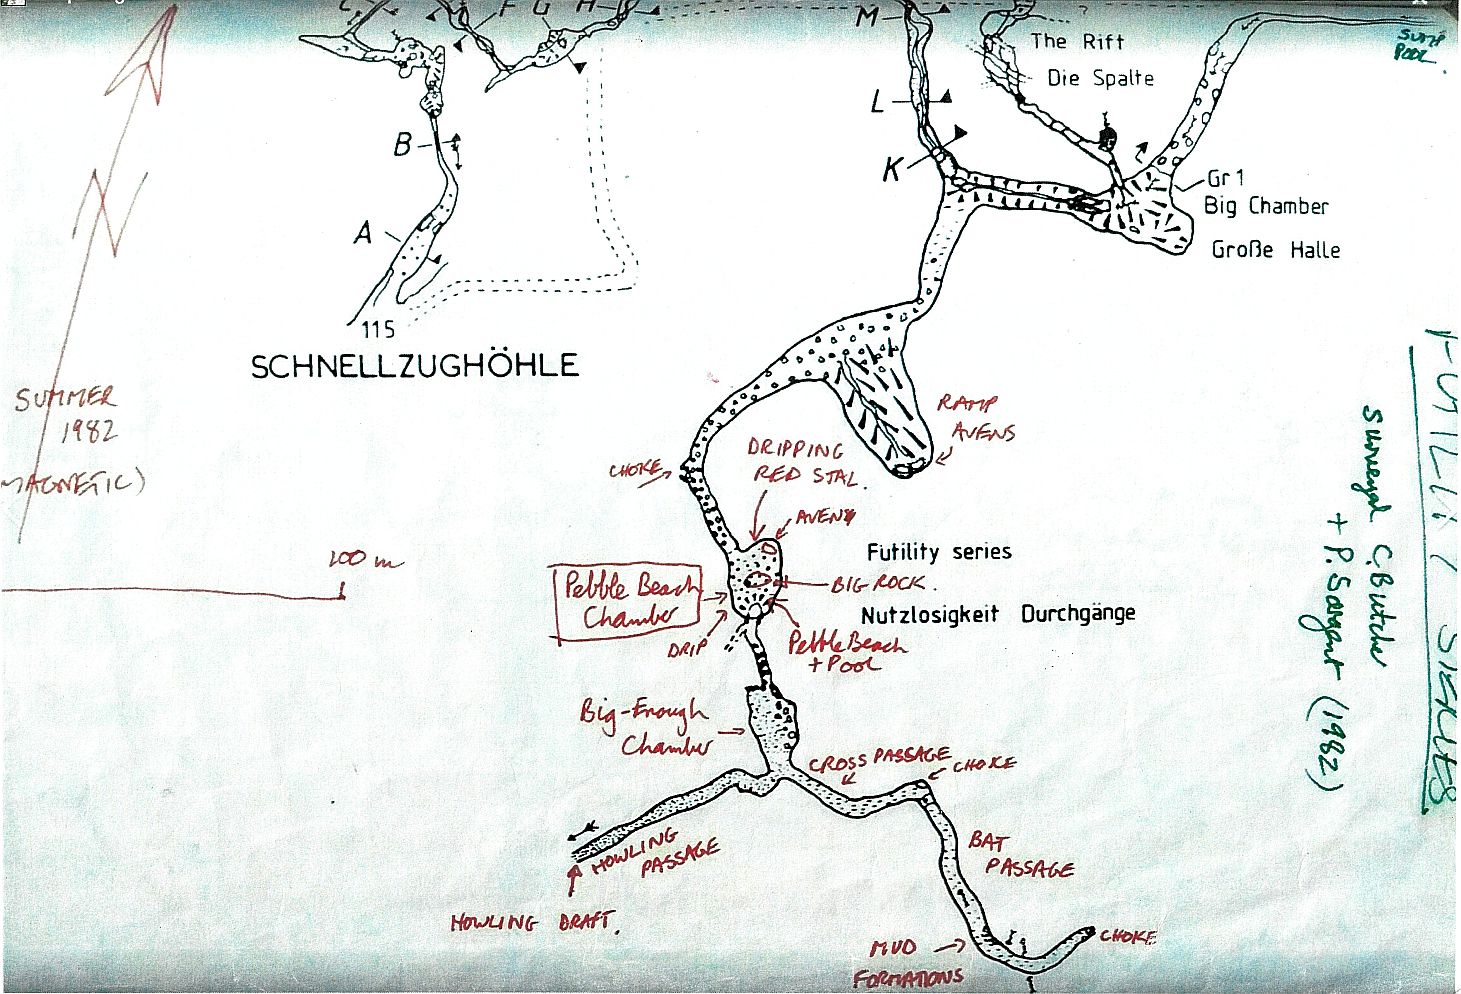 F
G
H
M
SUMP
POOL
The Rift
Die Spalte
L
B
K
Gr 1
Big Chamber
Große Halle
A
N
115
SCHNELLZUGHÖHLE
SUMMER
1982
MAGNETIC)
RAMP
AVENS
DRIPPING
RED STAL.
CHOKE
AVENS
100 m
Futility series
Pebble Beach
Chamber
BIG ROCK.
Nutzlosigkeit Durchgänge
DRIP
Pebble Beach
+ Pool
Big-Enough
Chamber
CROSS PASSAGE
CHOKE
HOWLING
PASSAGE
BAT
PASSAGE
HOWLING DRAFT.
MUD
FORMATIONS
CHOKE
FUTILITY SERIES
Surveyed C. Butcher
+ P. Sargant (1982)